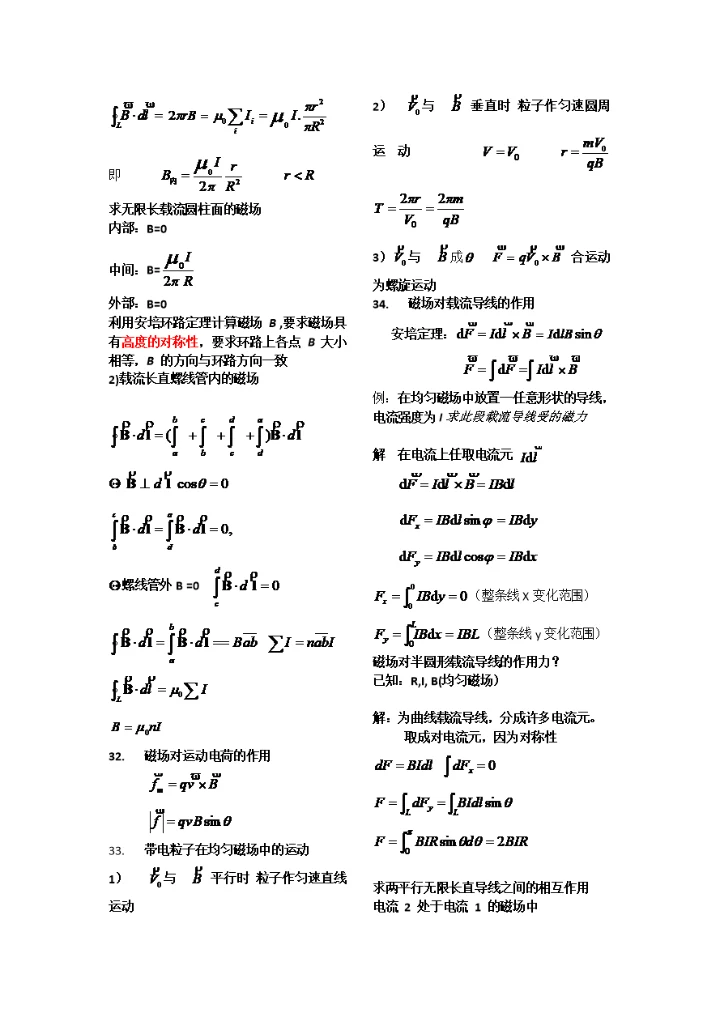 ∮_L B⃗·dl⃗ = 2πrB = μ₀∑_i I_i = μ₀I·πr²/πR²
即 B内 = μ₀I/2π r/R² r < R
求无限长载流圆柱面的磁场
内部：B=0
中间：B= μ₀I/2π R
外部：B=0
利用安培环路定理计算磁场 B ,要求磁场具
有高度的对称性，要求环路上各点 B 大小
相等，B 的方向与环路方向一致
2)载流长直螺线管内的磁场
∮B·dl = (∫_a^b + ∫_b^c + ∫_c^d + ∫_d^a)B·dl
Θ B ⊥ d l cosθ = 0
∫_b^c B·dl = ∫_d^a B·dl = 0,
Θ螺线管外 B =0 ∫_c^d B·d l = 0
∮B·dl = ∫_a^b B·dl = Bab ∑I = nabI
∮_L B·dl = μ₀∑I
B = μ₀nI
32. 磁场对运动电荷的作用
f_m = qv × B
|f| = qvB sinθ
33. 带电粒子在均匀磁场中的运动
1） V₀与 B 平行时 粒子作匀速直线
运动
2） V₀与 B 垂直时 粒子作匀速圆周
运 动 V = V₀ r = mV₀/qB
T = 2πr/V₀ = 2πm/qB
3）V₀与 B成θ F = qV₀ × B 合运动
为螺旋运动
34. 磁场对载流导线的作用
安培定理：dF = Idl × B = IdlB sinθ
F = ∫dF = ∫Idl × B
例：在均匀磁场中放置一任意形状的导线，
电流强度为 I 求此段载流导线受的磁力
解 在电流上任取电流元 Idl
dF = Idl × B = IBdl
dF_x = IBdl sinφ = IBdy
dF_y = IBdl cosφ = IBdx
F_x = ∫_0^0 IBdy = 0（整条线 X 变化范围）
F_y = ∫_0^L IBdx = IBL（整条线 y 变化范围）
磁场对半圆形载流导线的作用力？
已知：R,I, B(均匀磁场）
解：为曲线载流导线，分成许多电流元。
取成对电流元，因为对称性
dF = BIdl ∫dF_x = 0
F = ∫_L dF_y = ∫_L BIdl sinθ
F = ∫_0^π BIR sinθdθ = 2BIR
求两平行无限长直导线之间的相互作用
电流 2 处于电流 1 的磁场中